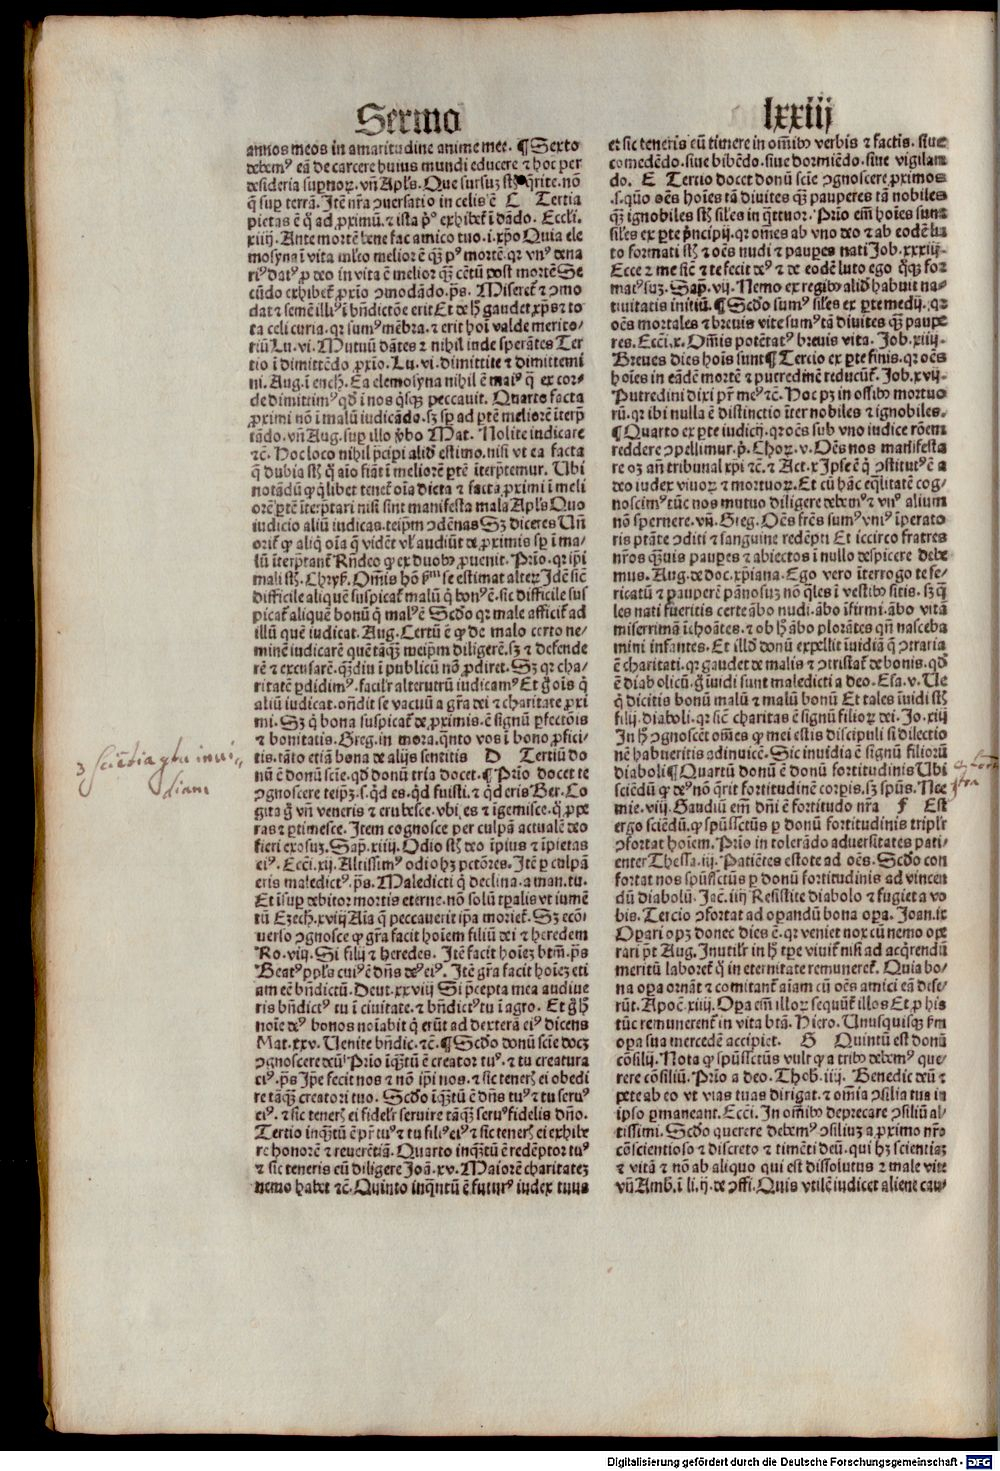 Sermo
lxxiij
annos meos in amaritudine anime mee. ¶ Sexto
debemꝰ eã de carcere huius mundi educere ⁊ hoc per
desideria supnoꝝ. vñ Apl's. Que sursuꝫ st̃ q̃rite. nõ
q̃ sup terrã. Itẽ nr̃a ꝯuersatio in celis ẽ C Tertia
pietas ẽ q̃ ad ꝓximũ. ⁊ ista pº exhibet̃ ĩ dãdo. Eccli.
xiiij. Ante mortẽ bene fac amico tuo .i. xp̃o Quia ele
mosyna ĩ vita ml'to melior ẽ qꝫ pꝰ mortẽ. qr vnꝰ dena
riꝰ datꝰ ꝓ deo in vita ẽ melior qꝫ cẽtũ post mortẽ Se
cũdo exhibet̃ ꝓxĩo ꝯmodãdo. p̃s. Miseret̃ ⁊ ꝯmo
dat ⁊ semẽ illiꝰ ĩ bñdictõe erit Et de h̃ gaudet xp̃s ⁊ to
ta celi curia. qr sumꝰ mẽbra. ⁊ erit hoĩ valde merito⸗
riũ Lu. vi. Mutuũ dãtes ⁊ nihil inde sperãtes Ter
tio ĩ dimittẽdo ꝓxĩo. Lu. vi. dimittite ⁊ dimittemi
ni. Aug. ĩ ench̃. Ea elemosyna nihil ẽ maiꝰ q̃ ex cor⸗
de dimittimꝰ qd̃ ĩ nos q̃sqꝫ peccauit. Quarto facta
ꝓximi nõ ĩ malũ iudicãdo. sꝫ sp ad ptẽ meliorẽ ĩterp̃
tãdo. vñ Aug. sup illo v̓bo Mat. Nolite iudicare
⁊c̃. Hoc loco nihil p̃cipi aliđ estimo. nisi vt ea facta
q̃ dubia st̃ q̃ aĩo fiãt ĩ meliorẽ ptẽ ĩterp̃temur. Ubi
notãdũ ꝙ q̃libet tenet̃ oĩa dicta ⁊ facta ꝓximi ĩ meli
orẽ ptẽ ĩterp̃tari nisi sint manifesta mala Apl's Quo
iudicio aliũ iudicas. teipm̃ ꝯdẽnas Sꝫ diceres Uñ
orit̃ ꝙ aliq̃ oĩa q̃ vidẽt vl' audiũt de ꝓximis sp ĩ ma⸗
lũ ĩterp̃tant̃ Rñdeo ꝙ ex duobꝰ ꝓuenit. Prĩo. qr ip̃i
mali st̃. Chryß. Om̃is hõ ẜm se estimat alteꝝ Idẽ sic̃
difficile aliquẽ suspicat̃ malũ q̃ bonꝰ ẽ. sic difficile sus
picat̃ aliquẽ bonũ q̃ malꝰ ẽ Scđo qr male afficit̃ ad
illũ quẽ iudicat. Aug. Certũ ẽ ꝙ de malo certo ne⸗
minẽ iudicarẽ quẽ tãqꝫ meipm̃ diligerẽ. sꝫ ⁊ defende
rẽ ⁊ excusarẽ. qᷓdiu ĩ publicũ nõ ꝓdiret. Sꝫ qr cha⸗
ritatẽ pdidimꝰ. facilr̃ alterutrũ iudicamꝰ Et g̃ois q̃
aliũ iudicat. oñdit se vacuũ a gr̃a dei ⁊ charitate ꝓxi
mi. Sꝫ q̃ bona suspicat̃ de ꝓximis. ẽ signũ pfectõis
⁊ bonitatis. Greg. in mora. q̃nto vos ĩ bono ꝓfici⸗
tis. tãto etiã bona de alijs sentitis D Tertiũ do
nũ ẽ donũ scie. qđ donũ tria docet. ¶ Prĩo docet te
ꝯgnoscere teipꝫ. s. qđ es. qđ fuisti. ⁊ qđ eris Ber. Co
gita g̃ vñ veneris ⁊ erubesce. vbi es ⁊ ĩgemisce. q̃ ꝓpe
ras ⁊ ptimesce. Item cognosce per culpã actualẽ deo
fieri exosuꝫ. Sap. xiiij. Odio st̃ deo ĩpius ⁊ ĩpietas
eiꝰ. Ecci. xij. Altissimꝰ odio hꝫ pctõres. Itẽ p culpã
eris maledictꝰ. p̃s. Maledicti q̃ declina. a man. tu.
Et ĩsup debitor mortis eterne. nõ solũ tpalis vt iumẽ
tũ Ezech. xviij Aĩa q̃ peccauerit ip̃a moriet̃. Sꝫ ecõ⸗
uerso ꝯgnosce ꝙ gr̃a facit hoĩem filiũ dei ⁊ heredem
Ro. viij. Si filij ⁊ heredes. Itẽ facit hoĩeꝫ btm̃. p̃s
Beatꝰ ppl's cuiꝰ ẽ dñs deꝰ eiꝰ. Itẽ gr̃a facit hoĩeꝫ eti
am eẽ bñdictũ. Deut. xxviij Si p̃cepta mea audiue
ris bñdictꝰ tu ĩ ciuitate. ⁊ bñdictꝰ tu ĩ agro. Et g̃ h̃
noĩe deꝰ bonos noĩabit q̃ erũt ad dexterã eiꝰ dicens
Mat. xxv. Uenite bñdic. ⁊c̃. ¶ Scđo donũ scie doꝫ
ꝯgnoscere deũ Prĩo ĩqᷓtũ ẽ creator tuꝰ. ⁊ tu creatura
eiꝰ. p̃s Ip̃e fecit nos ⁊ nõ ip̃i nos. ⁊ sic tenerꝭ ei obedi
re tãqꝫ creatori tuo. Scđo ĩqᷓtũ ẽ dñs tuꝰ ⁊ tu seruꝰ
eiꝰ. ⁊ sic tenerꝭ ei fidelr̃ seruire tãqꝫ seruꝰ fidelis dño.
Tertio inqᷓtũ ẽ pr̃ tuꝰ ⁊ tu filiꝰ eiꝰ ⁊ sic tenerꝭ ei exhibe
re honorẽ ⁊ reuerẽtiã. Quarto inqᷓtũ ẽ redẽptor tuꝰ
⁊ sic teneris eũ diligere Joã. xv. Maiorẽ charitateꝫ
nemo habet ⁊c̃. Quinto inqᷓntũ ẽ futurꝰ iudex tuus
et sic teneris eũ timere in om̃ibꝰ verbis ⁊ factis. siue
comedẽdo. siue bibẽdo. siue dormiẽdo. siue vigilan
do. E Tercio docet donũ scie ꝯgnoscere ꝓximos
.s. quõ oẽs hoĩes tã diuites qꝫ pauperes tã nobiles
qꝫ ignobiles st̃ sil'es in q̃ttuor. Prĩo em̃ hoĩes sunt
sil'es ex pte p̃ncipij. qr om̃es ab vno deo ⁊ ab eodẽ lu
to formati st̃ ⁊ oẽs nudi ⁊ paupes nati Job. xxxiij.
Ecce ⁊ me sic̃ ⁊ te fecit deꝰ ⁊ de eodẽ luto ego q̃qꝫ for
matꝰ suꝫ. Sap. vij. Nemo ex regibꝰ aliđ habuit na⸗
tiuitatis initiũ. ¶ Scđo sumꝰ sil'es ex pte medij. qr
oẽs mortales ⁊ breuis vite sumꝰ tã diuites qꝫ paupe
res. Ecci. x. Om̃is potẽtatꝰ breuis vita. Job. xiiij.
Breues dies hoĩs sunt ¶ Tercio ex pte finis. qr oẽs
hoĩes in eãdẽ mortẽ ⁊ putredinẽ reducũt̃. Job. xvij.
Putredini dixi pr̃ meꝰ ⁊c̃. Hoc pꝫ in ossibꝰ mortuo
rũ. qr ibi nulla ẽ distinctio ĩter nobiles ⁊ ignobiles.
¶ Quarto ex pte iudicij. qr oẽs sub vno iudice rõem
reddere ꝯpellimur. p̃. Choꝝ. v. Oẽs nos manifesta
re oꝫ añ tribunal xp̃i ⁊c̃. ⁊ Act. x Ip̃se ẽ q̃ ꝯstitutꝰ ẽ a
deo iudex viuoꝝ ⁊ mortuoꝝ. Et cũ hãc eq̃litatẽ cog⸗
noscimꝰ tũc nos mutuo diligere debemꝰ ⁊ vnꝰ alium
nõ spernere. vñ. Greg. Oẽs fr̃es sumꝰ vniꝰ ĩperato
ris ptãte ꝯditi ⁊ sanguine redẽpti Et iccirco fratres
nr̃os qᷓuis paupes ⁊ abiectos ĩ nullo despicere debe
mus. Aug. de doc. xp̃iana. Ego vero ĩterrogo te se⸗
ricatũ ⁊ pauperẽ pãnosuꝫ nõ q̃les ĩ vestibꝰ sitis. sꝫ q̃
les nati fueritis certe ãbo nudi. ãbo ĩfirmi. ãbo vitã
miserrimã ĩchoãtes. ⁊ ob h̃ ãbo plorãtes qñ nasceba
mini infantes. Et illđ donũ expellit ĩuidiã q̃ ꝯtraria
ẽ charitati. qr gaudet de malis ⁊ ꝯtristat̃ de bonis. qđ
ẽ diabolicũ. g̃ ĩuidi sunt maledicti a deo. Esa. v. Ue
q̃ dicitis bonũ malũ ⁊ malũ bonũ Et tales ĩuidi st̃
filij diaboli. qr sic̃ charitas ẽ signũ filioꝝ dei. Jo. xiij
In h̃ ꝯgnoscẽt om̃es ꝙ mei estis discipuli si dilectio
nẽ habueritis adinuicẽ. Sic inuidia ẽ signũ filiorũ
diaboli ¶ Quartũ donũ ẽ donũ fortitudinis Ubi
sciẽdũ ꝙ deꝰ nõ q̃rit fortitudinẽ corpis. sꝫ sp̃us. Nee
mie. viij. Gaudiũ em̃ dñi ẽ fortitudo nr̃a F Est
ergo sciẽdũ. ꝙ sp̃ussctũs p donũ fortitudinis triplr̃
ꝯfortat hoĩem. Prĩo in tolerãdo aduersitates pati⸗
enter Thessa. iij. Patiẽtes estote ad oẽs. Scđo con
fortat nos sp̃ussctũs p donũ fortitudinis ad vincen
dũ diabolũ. Jac̃. iiij Resistite diabolo ⁊ fugiet a vo
bis. Tercio ꝯfortat ad opandũ bona opa. Joan. ix
Opari opꝫ donec dies ẽ. qr veniet nox cũ nemo ope
rari pt̃ Aug. Inutilr̃ in h̃ tpe viuit̃ nisi ad acq̃rendũ
meritũ laboret̃ q̃ in eternitate remuneret̃. Quia bo⸗
na opa ornãt ⁊ comitant̃ aĩam cũ oẽs amici eã dese⸗
rũt. Apoc̃. xiiij. Opa em̃ illoꝝ sequũt̃ illos Et p his
tũc remunerent̃ in vita btã. Hiero. Unusquisqꝫ ẜm
opa sua mercedẽ accipiet. G Quintũ est donũ
cõsilij. Nota ꝙ sp̃ussctũs vult ꝙ a tribꝰ debemꝰ que⸗
rere cõsiliũ. Prĩo a deo. Thob. iiij. Benedic deũ ⁊
pete ab eo vt vias tuas dirigat. ⁊ om̃ia ꝯsilia tua in
ipso pmaneant. Ecci. In om̃ibꝰ deprecare ꝯsiliũ al⸗
tissimi. Scđo querere debemꝰ ꝯsiliuꝫ a ꝓximo nr̃o
cõscientioso ⁊ discreto ⁊ timẽti deũ. qui hꝫ scientiaꝫ
⁊ vitã ⁊ nõ ab aliquo qui est dissolutus ⁊ male vite
vñ Amb. ĩ li. ij. de offi. Quis vtilẽ iudicet aliene cau⸗
3 Sciẽtia ꝯtra inui⸗
diam
Digitalisierung gefördert durch die Deutsche Forschungsgemeinschaft - DFG